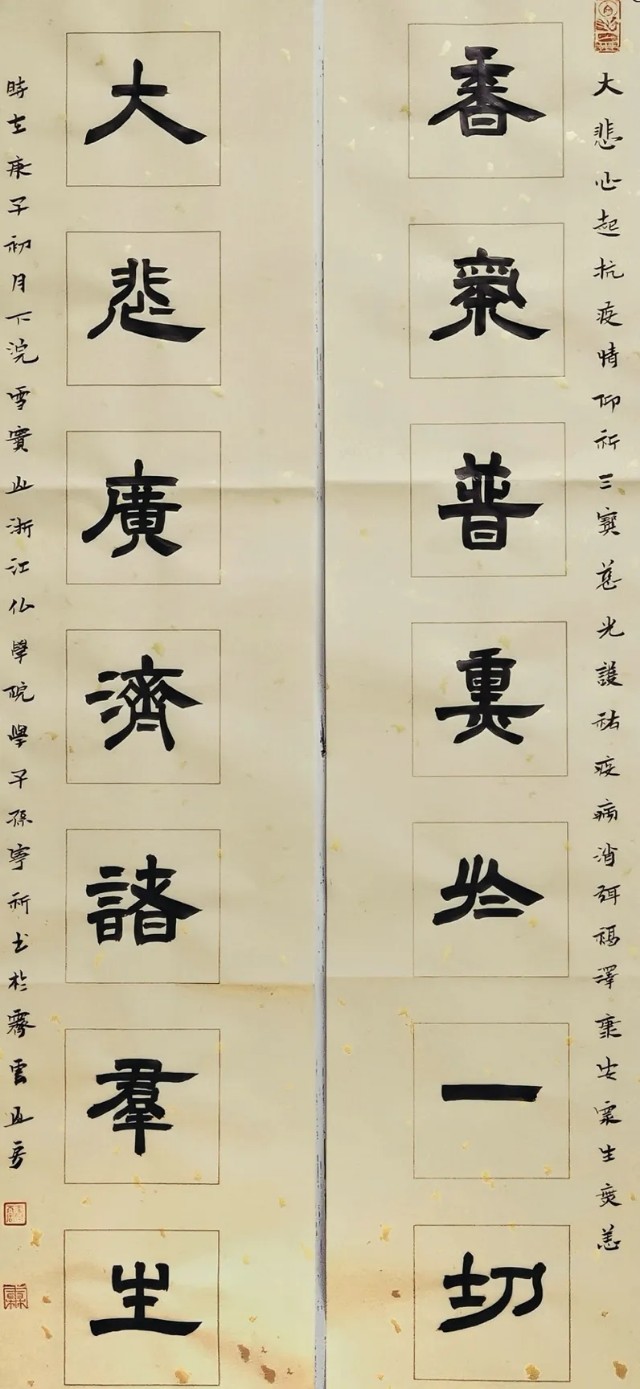 大悲心起抗疫情仰祈三寶慈光護祐疫病消弭福澤康安眾生無恙
香氣普熏於一切
大悲廣濟諸羣生
時在庚子初月下浣雪竇山浙江仏學院學子孫寧祈書於霽雲山房